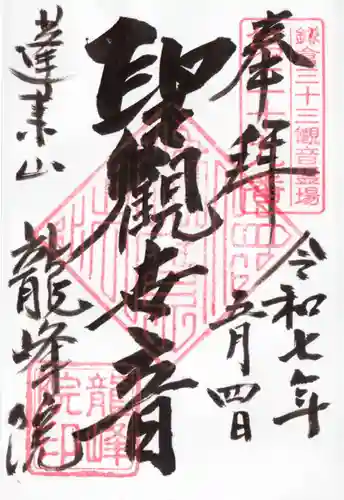 鎌倉三十三観音霊場
奉拝
令和七年
五月四日
聖觀世音
蓬莱山
龍峰院
龍峰
院印